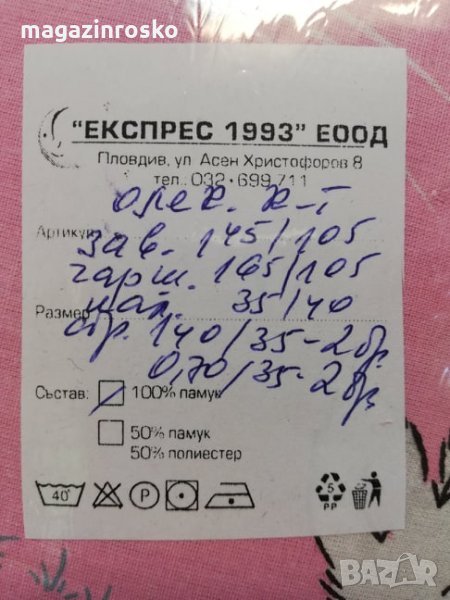 magazinrosko
"ЕКСПРЕС 1993" ЕООД
Пловдив, ул. Асен Христофоров 8
тел.: 032 • 699 711
К-т
Артикул
зав. 145/105
чарш. 165/105
Размер
кал. 35/40
стр. 140/35-2бр
0,70/35-2бр
Състав: 100% памук
50% памук
50% полиестер
40° P 5
PP
BAZAR